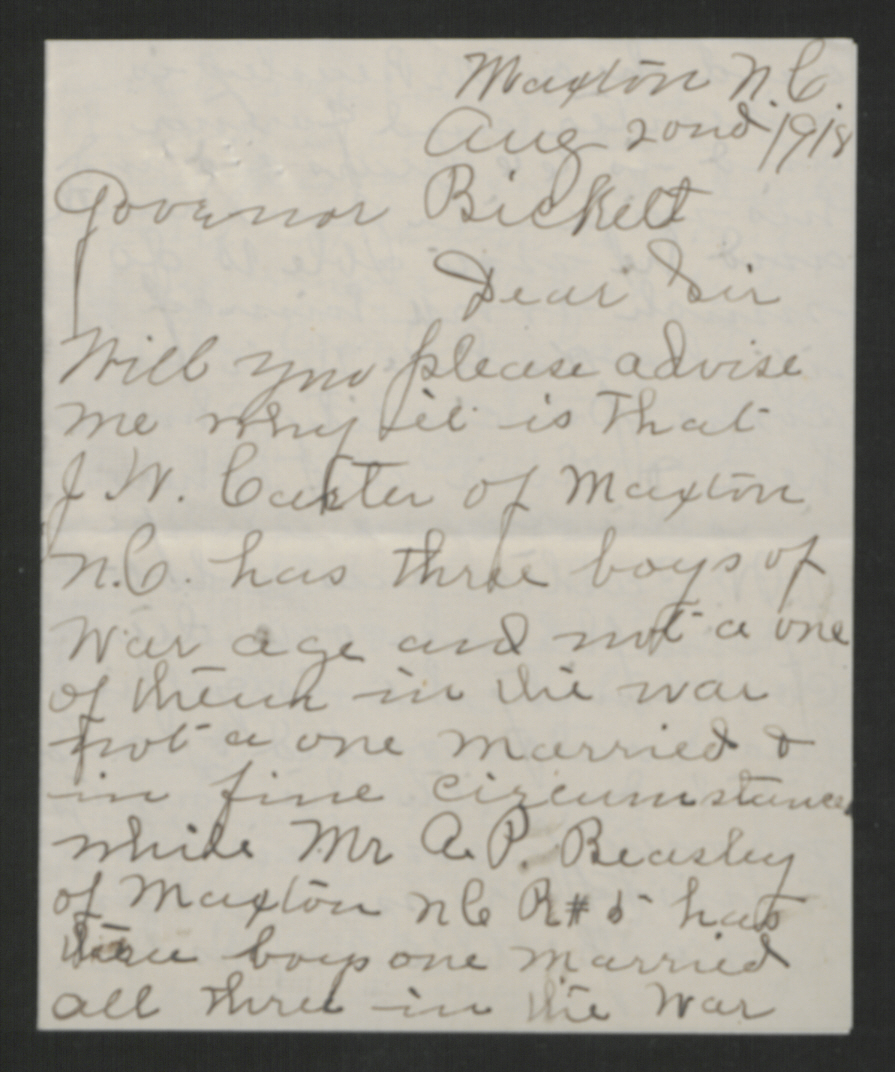 Maxton N.C.
Aug 22nd 1918
Governor Bickett
Dear Sir
Will you please advise
me why it is that
J. W. Carter of Maxton
N.C. has three boys of
War age and not a one
of them in the war
not a one married &
in fine circumstances
while Mr A. P. Beasley
of Maxton NC R#5 has
three boys one married
all three in the War